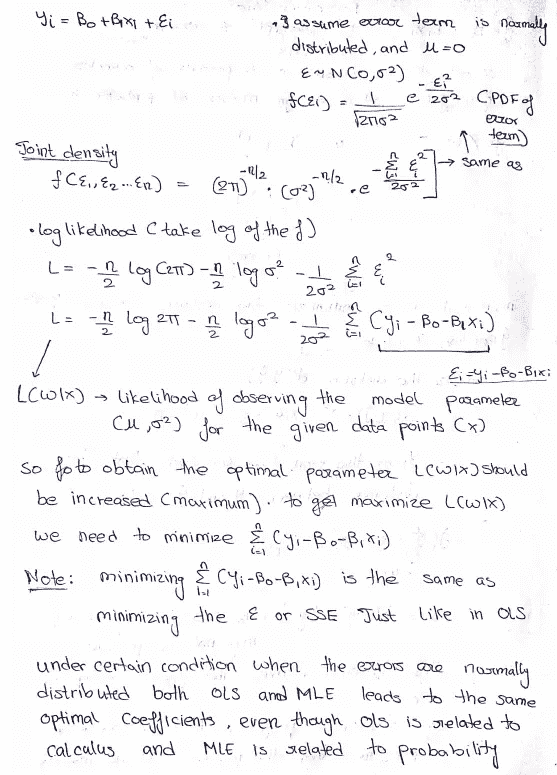 yi = B0 + B1x1 + Ei
• I assume error term is normally
distributed, and μ=0
ε ~ N(0, σ²)
f(εi) = 1/√2πσ² e^-εi²/2σ² (PDF of
error
term)
Joint density
f(ε1, ε2 ... εn) = (2π)^-n/2 . (σ²)^-n/2 . e^-Σ(i=1 to n) εi²/2σ² ] → same as
• log likelihood ( take log of the f)
L = -n/2 log(2π) - n/2 log σ² - 1/2σ² Σ(i=1 to n) εi²
L = -n/2 log 2π - n/2 log σ² - 1/2σ² Σ(i=1 to n) (yi - β0 - β1xi)
εi = yi - β0 - β1xi
L(w|x) → likelihood of observing the model parameter
(μ, σ²) for the given data points (x)
so to obtain the optimal parameter L(w|x) should
be increased (maximum). to get maximize L(w|x)
we need to minimize Σ(i=1 to n) (yi - β0 - β1xi)
Note: minimizing Σ(i=1 to n) (yi - β0 - β1xi) is the same as
minimizing the ε or SSE Just like in OLS
under certain condition when the errors are normally
distributed both OLS and MLE leads to the same
optimal coefficients, even though OLS is related to
calculus and MLE is related to probability